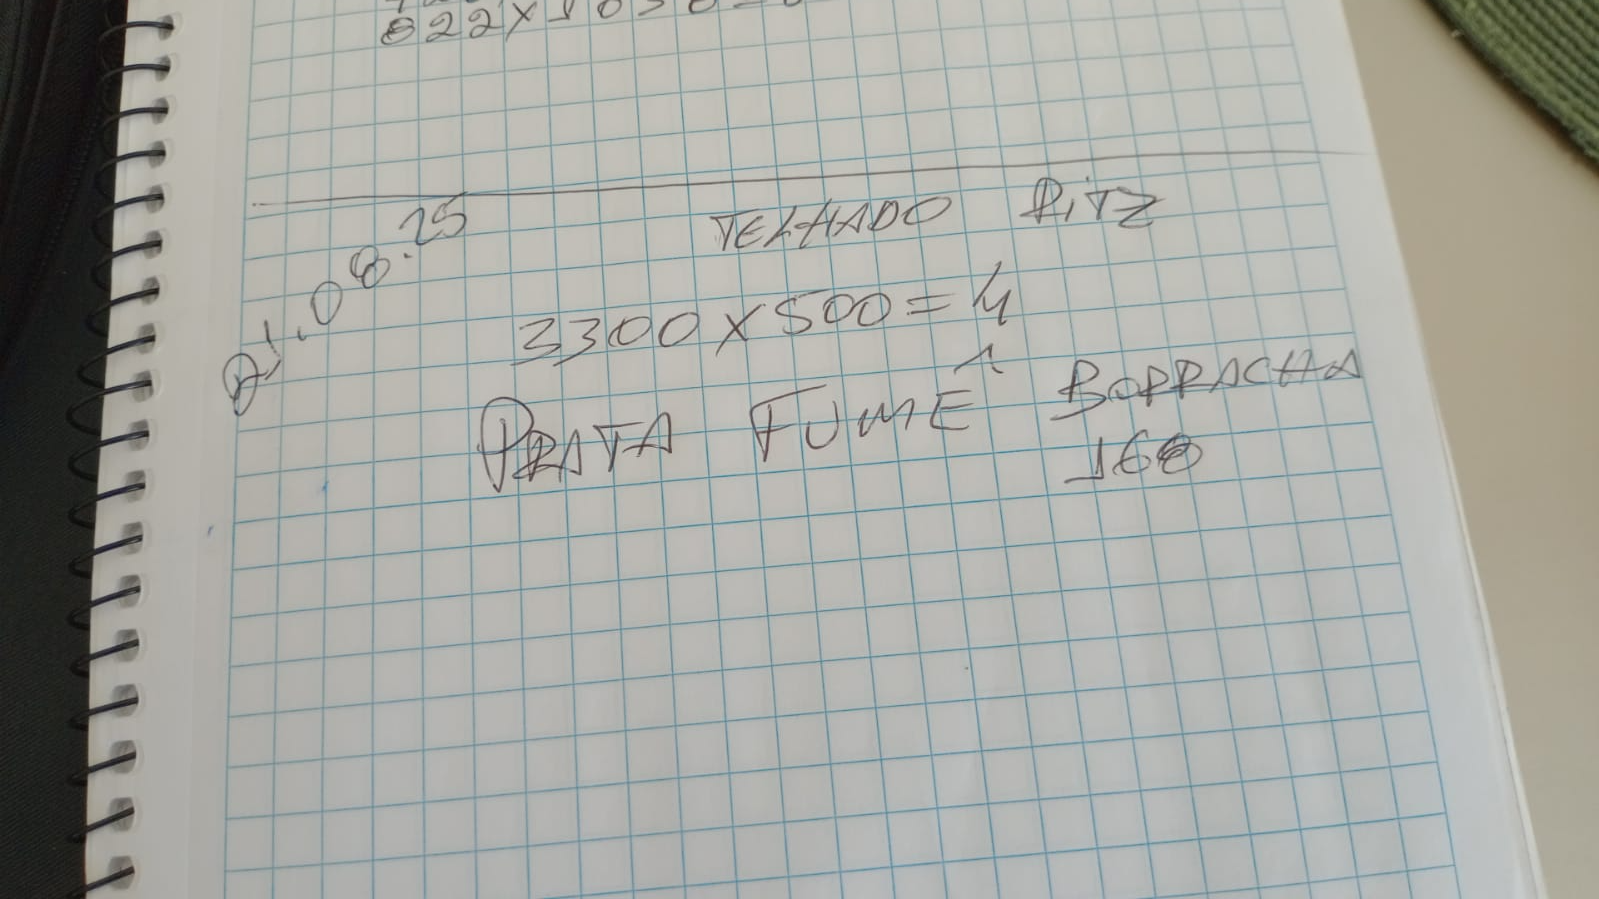 822x1030
21.08.25
TELHADO RITZ
3300x500=4
PRATA FUMÊ BORRACHA
160